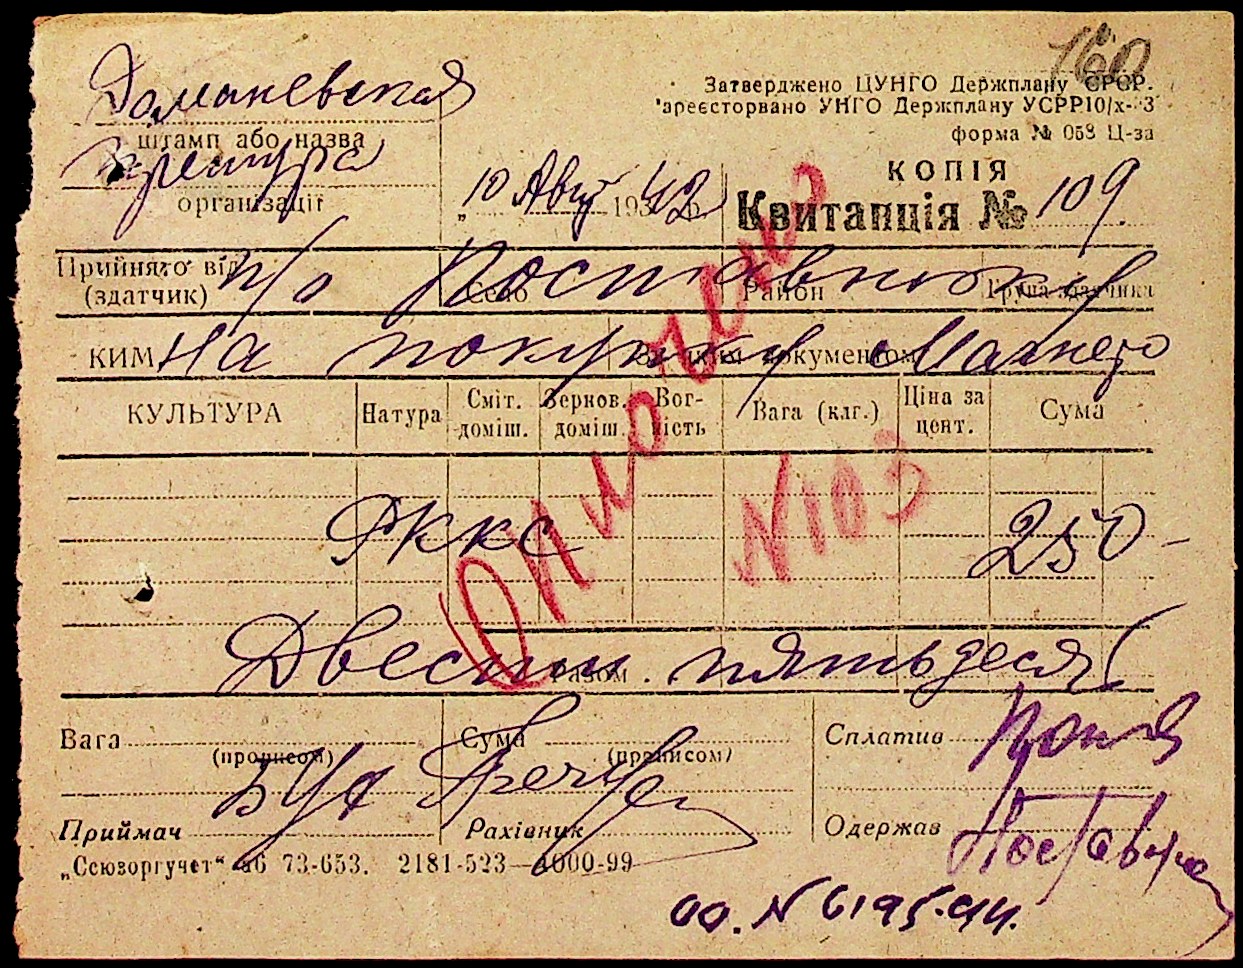 160
Затверджено ЦУНГО Держплану СРСР.
'ареєсторвано УНГО Держплану УСРР10/х-'3
форма № 058 Ц-за
Доманевская
штамп або назва
організації
„ 10 Авг 193 42 р.
КОПІЯ
Квитанція № 109
Прийнято від
(здатчик)
п/о
Село
Район
Група здатчика
КИМ На покупку
За яким документом
КУЛЬТУРА
Натура
Сміт.
доміш.
Зернов.
доміш.
Вог-
кість
Вага (клг.)
Ціна за
цент.
Сума
N103
РККС
250 –
Двести пятьдесят
Разом
Вага
(прописом)
Сума
(прописом)
Сплатив
Бух
Приймач
Рахівник
Одержав
„Союзоргучет“ 46 73-653. 2181-523—4000-99
оо. N 6195-44.